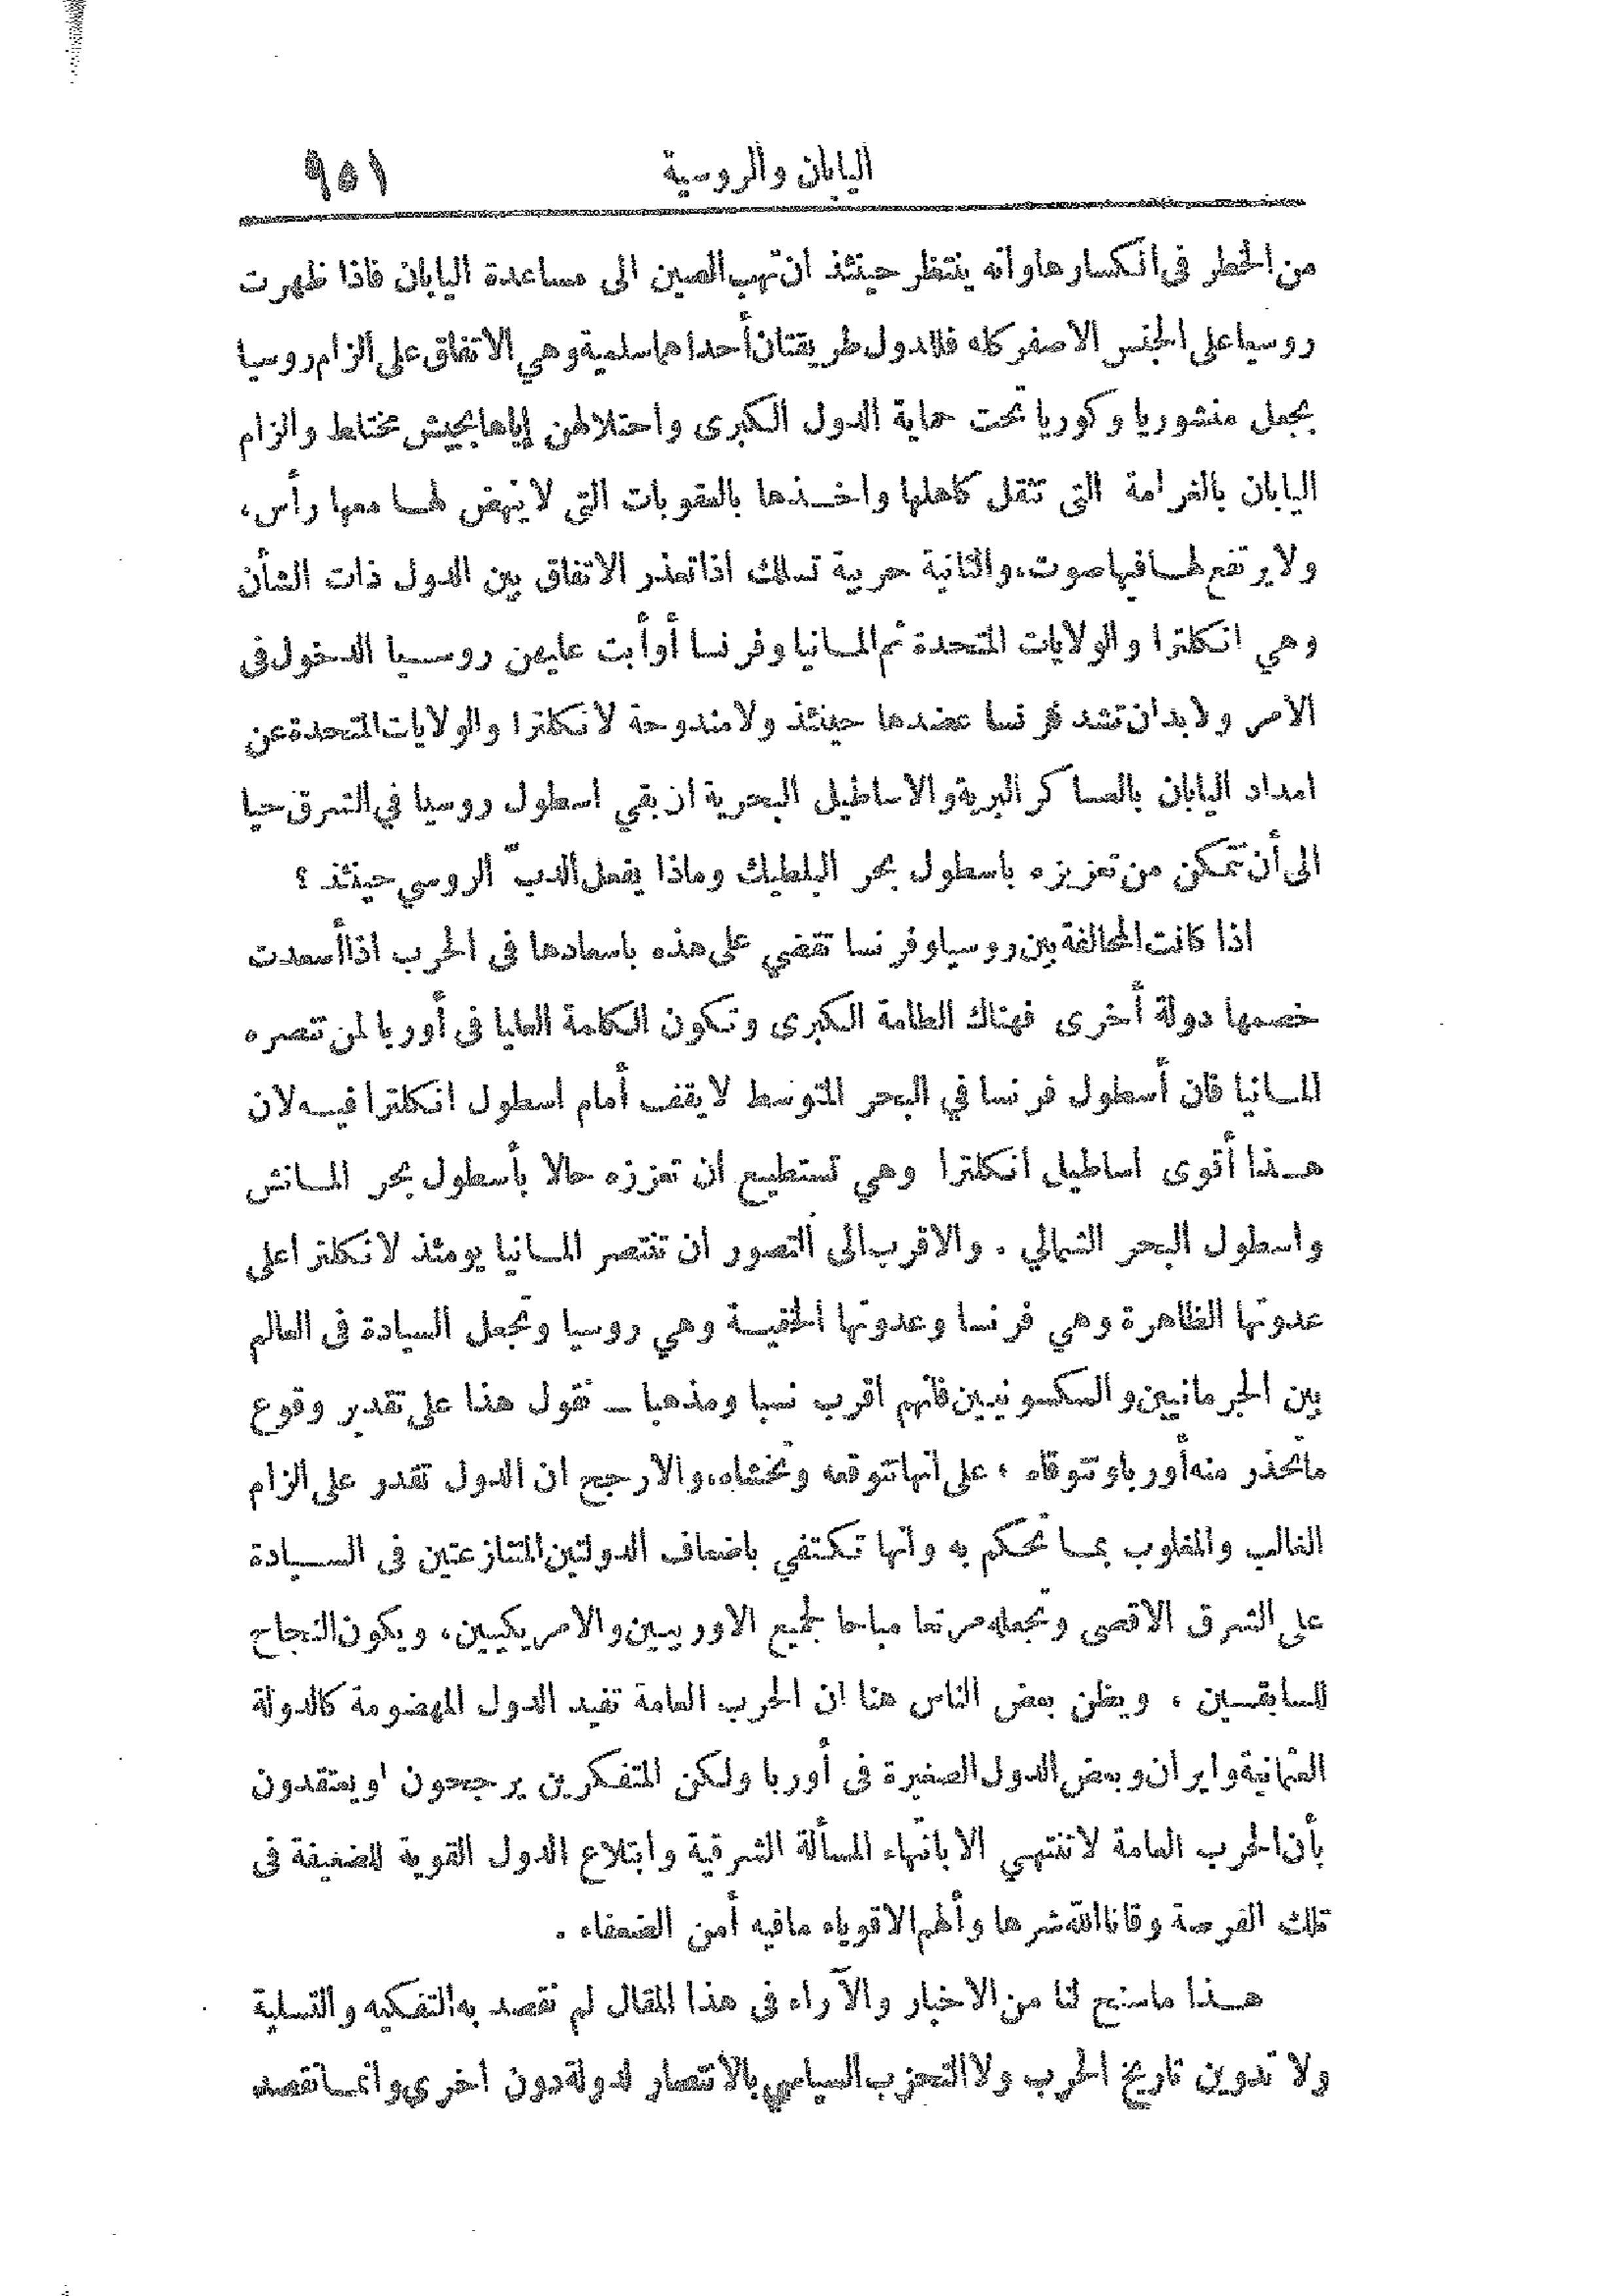 اليابان والروسية ٩٥١
من الخطر في انكسارها وانه ينتظر حينئذ ان تهب الصين الى مساعدة اليابان فاذا ظهرت
روسيا على الجنس الاصفر كله فللدول طريقتان أحداهما سلمية وهي الاتفاق على الزام روسيا
بجعل منشوريا وكوريا تحت حماية الدول الكبرى واحتلالهن إياها بجيش مختلط والزام
اليابان بالغرامة التي تثقل كاهلها واخذها بالعقوبات التي لا ينهض لها معها رأس،
ولا يرتفع لها فيها صوت، والثانية حربية تسلك اذا تعذر الاتفاق بين الدول ذات الشأن
وهي انكلترا والولايات المتحدة ثم المانيا وفرنسا أو أبت عليهن روسيا الدخول في
الامر ولا بد ان تشد فرنسا عضدها حينئذ ولا مندوحة لانكلترا والولايات المتحدة عن
امداد اليابان بالعساكر البرية والاساطيل البحرية ان بقي اسطول روسيا في الشرق حيا
الى أن تتمكن من تعزيزه باسطول بحر البلطيك وماذا يفعل الدبّ الروسي حينئذ ؟
اذا كانت المحالفة بين روسيا وفرنسا تقضي على هذه باسعادها في الحرب اذا أسعدت
خصمها دولة أخرى فهناك الطامة الكبرى وتكون الكلمة العليا في أوربا لمن تنصره
المانيا فان أسطول فرنسا في البحر المتوسط لا يقف أمام اسطول انكلترا فيه لان
هذا أقوى اساطيل انكلترا وهي تستطيع ان تعززه حالا بأسطول بحر المانش
واسطول البحر الشمالي . والاقرب الى التصور ان تنتصر المانيا يومئذ لانكلترا على
عدوتها الظاهرة وهي فرنسا وعدوتها الخفية وهي روسيا وتجعل السيادة في العالم
بين الجرمانيين والسكسونيين فانهم اقرب نسبا ومذهبا ـ نقول هذا على تقدير وقوع
ما تحذر منه أوربا وتتوقاه ، على انها تتوقعه وتخشاه، والارجح ان الدول تقدر على الزام
الغالب والمغلوب بما تحكم به وانها تكتفي باضعاف الدولتين المتنازعتين في السيادة
على الشرق الاقصى وتجعله مرتعا مباحا لجميع الاوربيين والامريكيين، ويكون النجاح
للسابقين ، ويظن بعض الناس هنا ان الحرب العامة تفيد الدول المهضومة كالدولة
العثمانية وايران وبعض الدول الصغيرة في أوربا ولكن المتفكرين يرجحون او يعتقدون
بأن الحرب العامة لا تنتهي الا بانتهاء المسألة الشرقية وابتلاع الدول القوية للضعيفة في
تلك الفرصة وقانا الله شرها وألهم الاقوياء ما فيه أمن الضعفاء .
هذا ما سنح لنا من الاخبار والآراء في هذا المقال لم نقصد به التفكيه والتسلية
ولا تدوين تاريخ الحرب ولا التحزب السياسي بالانتصار لدولة دون اخرى وانما نقصد